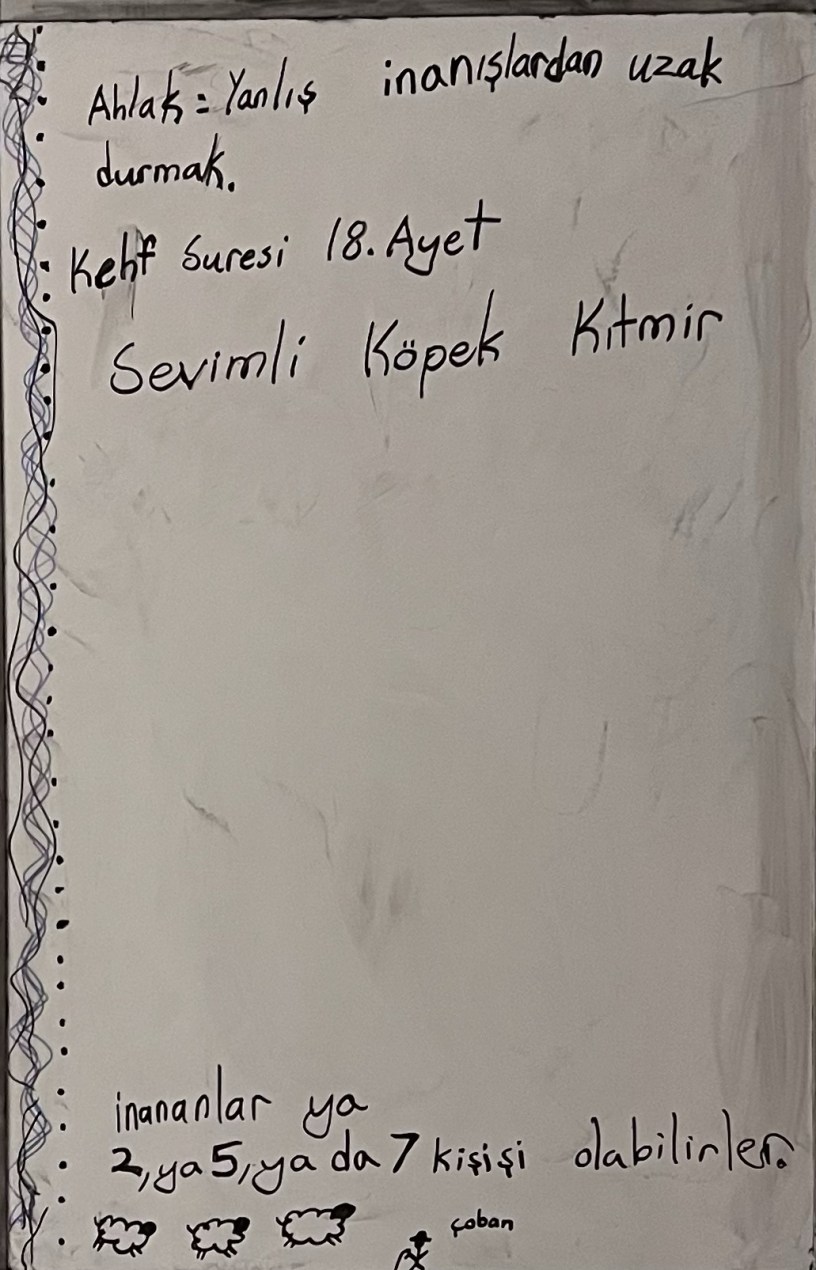 Ahlak = Yanlış inanışlardan uzak
durmak.
Kehf Suresi 18. Ayet
Sevimli Köpek Kıtmir
inananlar ya
2, ya 5, ya da 7 kişişi olabilirler.
çoban